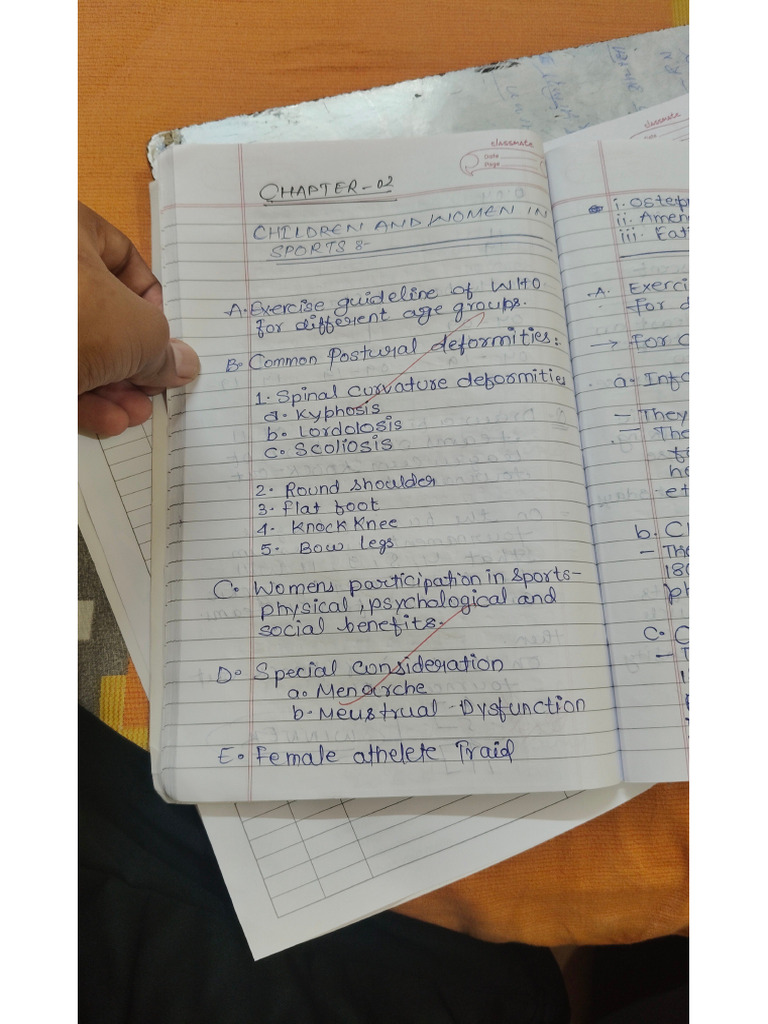 classmate
Date
Page
CHAPTER-02
CHILDREN AND WOMEN IN
SPORTS :-
A. Exercise guideline of WHO
for different age groups.
B. Common Postural deformities:
1. Spinal curvature deformities
a. Kyphosis
b. Lordolosis
c. Scoliosis
2. Round shoulder
3. flat foot
4. Knock Knee
5. Bow legs
C. Womens participation in sports-
physical, psychological and
social benefits.
D. Special consideration
a. Menarche
b. Meustrual Dysfunction
E. Female athelete Traid
classmate
i. Osterp
ii. Amen
iii. Eat
A. Exerci
for d
→ For C
a. Info
- They
- The
fo
he
et
b. C
- The
180
ph
c. C